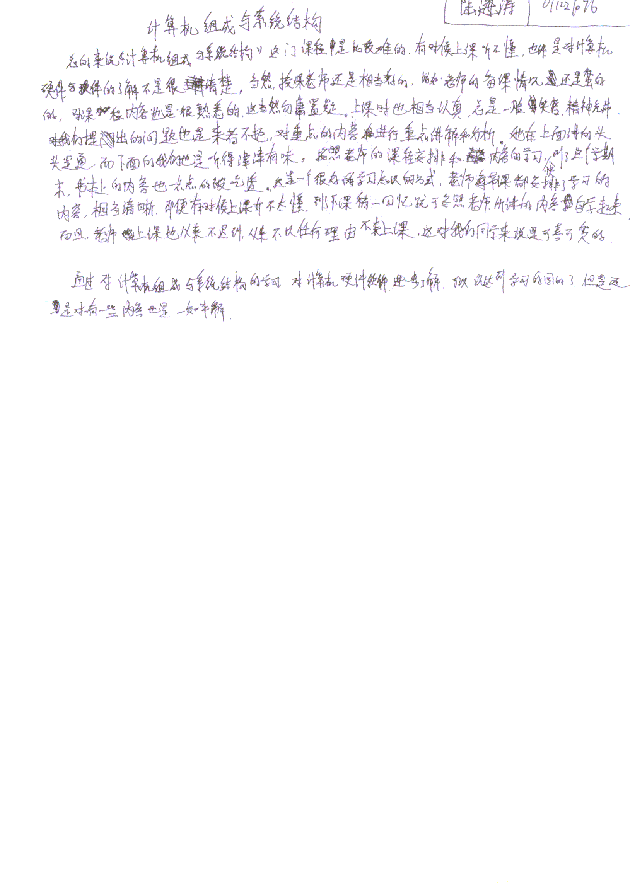 陆海涛 01121076
计算机组成与系统结构
总的来说《计算机组成与系统结构》这门课程是比较难的，有时候上课听不懂，也许是对计算机
硬件的了解不是很清楚。当然，授课老师还是相当好的，老师的备课情况还是蛮好
的，对课程内容也是很熟悉的，这当然勿庸置疑。上课时也相当认真，总是一股
对我们提出的问题也是来者不拒，对重点的内容进行重点讲解和分析。她在上面讲的头
头是道，而下面的我们也是听得津津有味。按照老师的课程安排和内容的学习，学期
末，书本上的内容也一点点的被吃透。这是一个很好的学习知识的方式，老师每堂课都安排了学习的
内容，相当清晰，即使有时候上课听不太懂，到下课稍一回忆，就可参照老师所讲的内容自学起来
而且，老师上课也从来不迟到，从来不以任何理由不来上课，这对我们同学来说是可喜可贺的。
通过对计算机组成与系统结构的学习，对计算机硬件了解，学习的目的了，但是还
是对有一些内容一知半解。